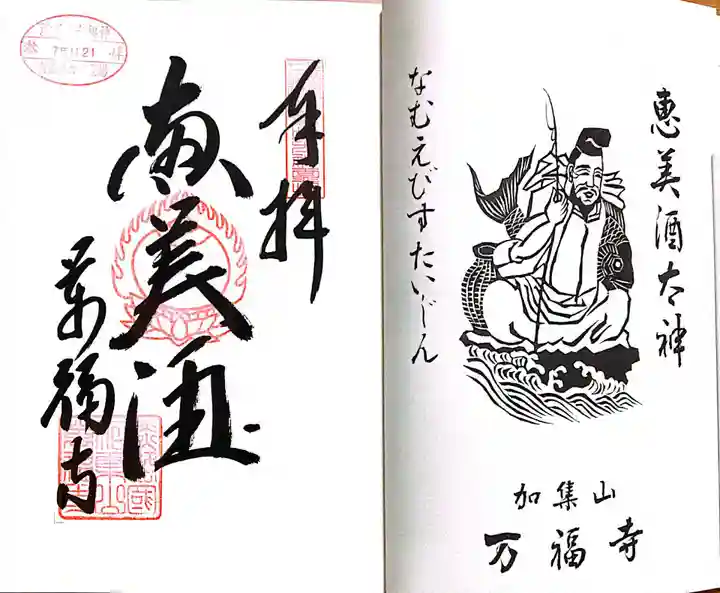 恵美酒太神
なむえびすたいじん
加集山
万福寺
奉拝
恵美酒
萬福寺
7.11.21